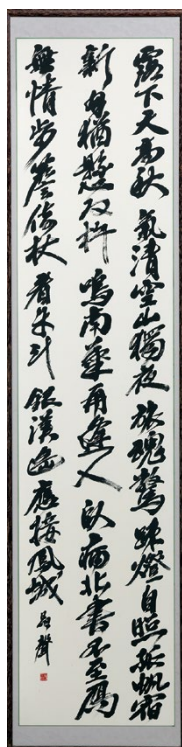 露下天高秋氣清空山獨夜旅魂驚疎燈自照孤帆宿
新月猶懸双杵鳴南菊再逢人臥病北書不至鴈
無情步簷倚杖看牛斗銀漢遙應接鳳城
聲